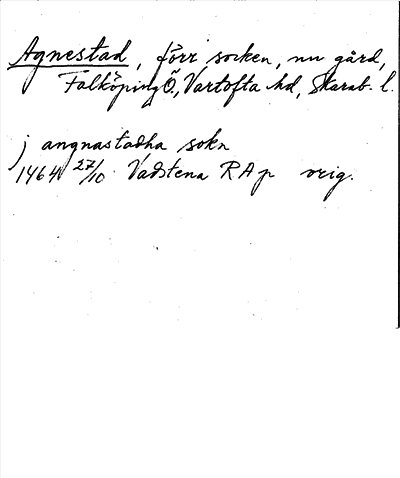 Agnestad, förr socken, nu gård,
Falköping Ö., Vartofta hd, Skarab. l.
j angnastadha sokn
1464 27/10 Vadstena RAp orig.